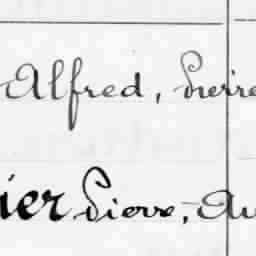 Alfred, Pierre
ier Pierre, Au